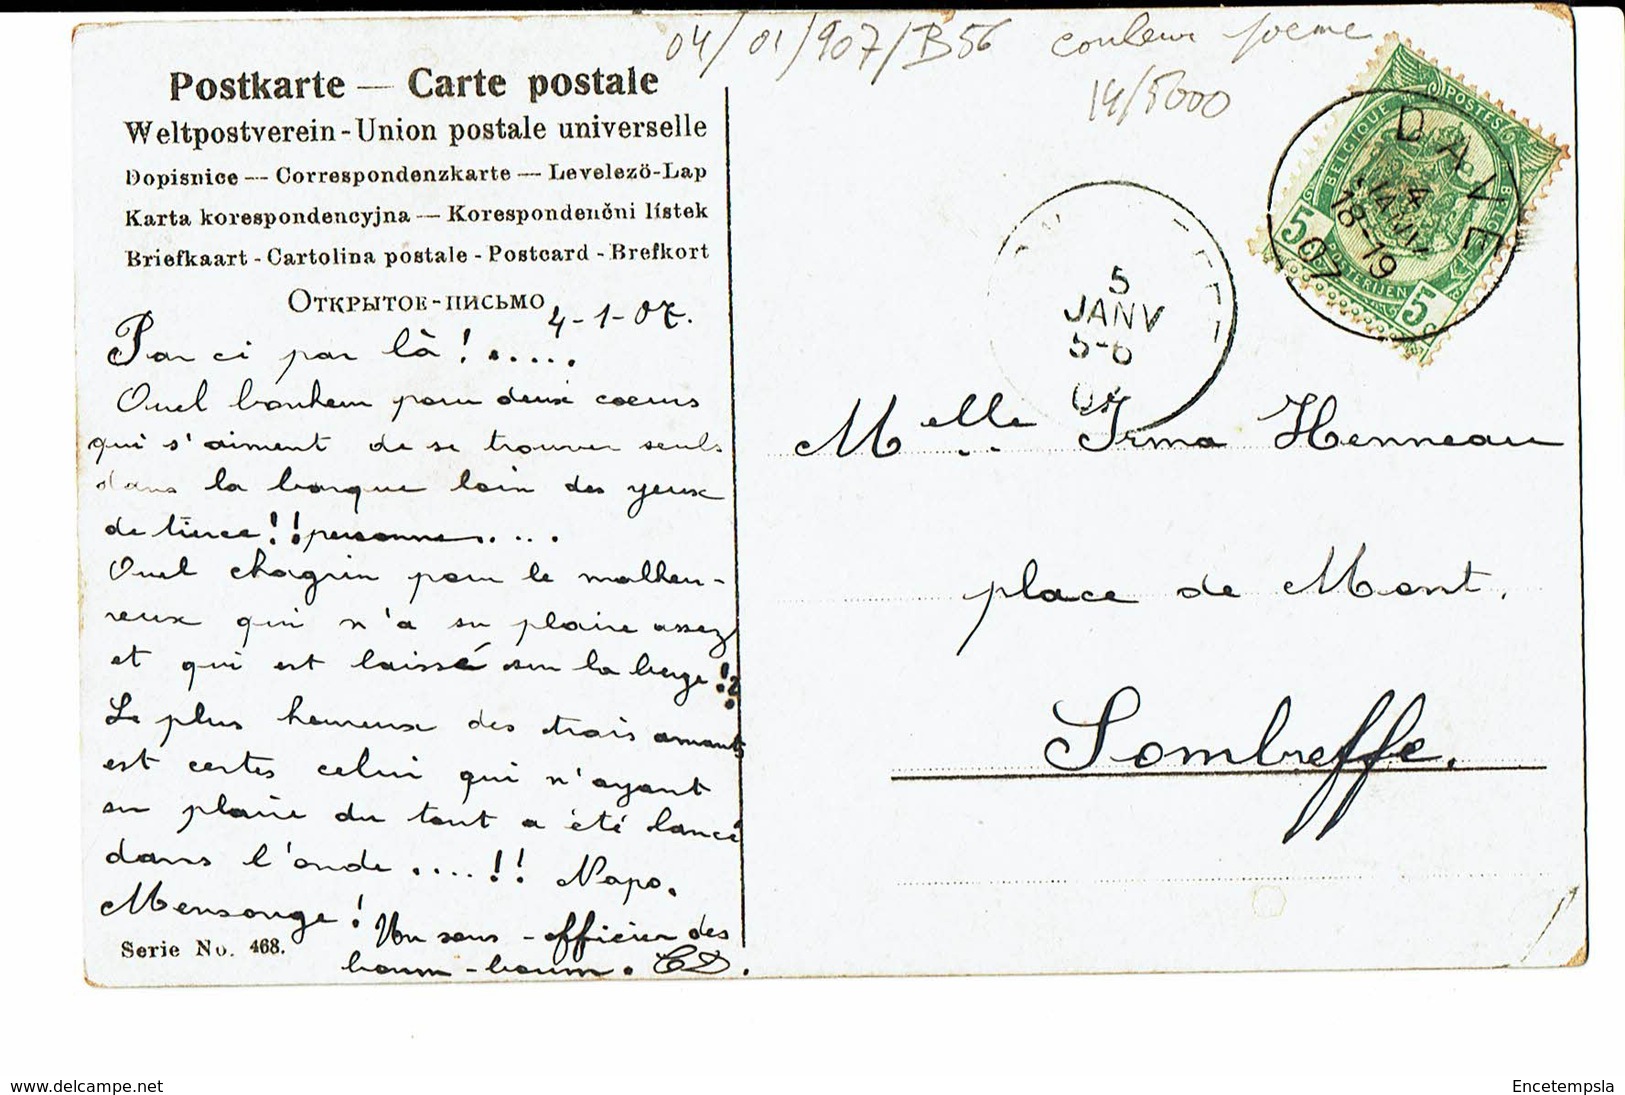 04/01/907/B56 couleur poeme
14/5000
Postkarte — Carte postale
Weltpostverein - Union postale universelle
Dopisnice — Correspondenzkarte — Levelezö-Lap
Karta korespondencyjna — Korespondenční lístek
Briefkaart - Cartolina postale - Postcard - Brefkort
Открытое-письмо
4-1-07.
Par ci par là !.....
Quel bonheur pour deux coeurs
qui s'aiment de se trouver seuls
dans la barque loin des yeux
de tierce !! personnes....
Quel chagrin pour le malheu-
reux qui n'a su plaire assez
et qui est laissé sur la berge !?
Le plus heureux des trois amants
est certes celui qui n'ayant
su plaire du tout a été lancé
dans l'onde ....!! Napo.
Mensonge !
Un sous-officier des
boum-boum. CD.
Serie No. 468.
BELGIQUE POSTES
BELGIE POSTERIJEN
5 5
DAVE
4 JANV
18-19
07
5
JANV
5-6
07
Melle Irma Henneau
place de Mont.
Sombreffe.
www.delcampe.net
Encetempsla